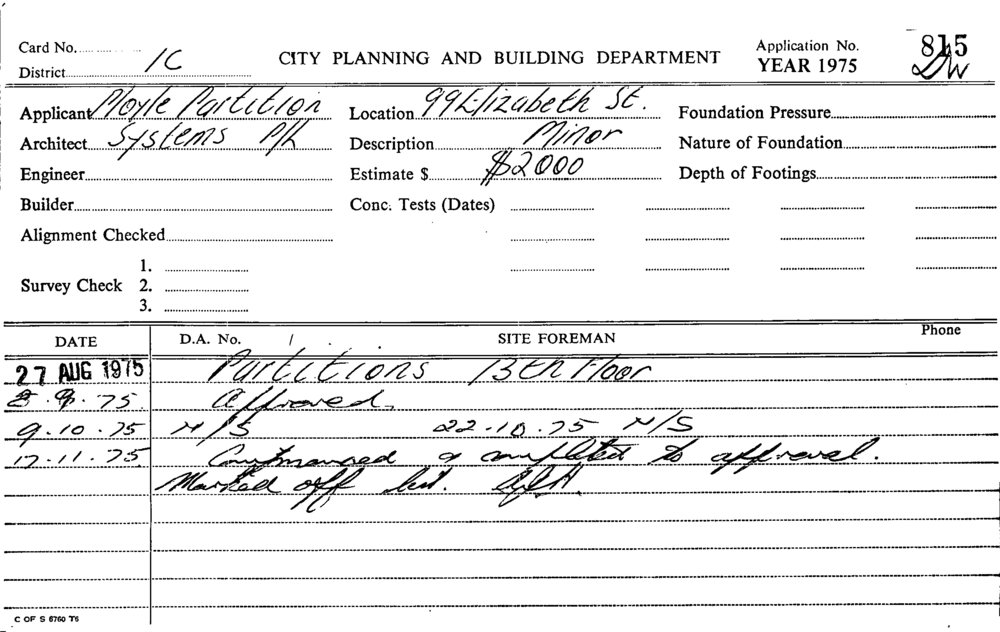 Card No. 1C
District
CITY PLANNING AND BUILDING DEPARTMENT
Application No. 815
YEAR 1975 DW
Applicant Moyle Partition
Location 99 Elizabeth St.
Foundation Pressure
Architect Systems P/L
Description Minor
Nature of Foundation
Engineer
Estimate $ $2000
Depth of Footings
Builder
Conc. Tests (Dates)
Alignment Checked
Survey Check 1.
2.
3.
DATE D.A. No. SITE FOREMAN Phone
27 AUG 1975 Partitions 13th Floor
9.75. Approved.
9.10.75 N/S 22.10.75 N/S
17.11.75. Commenced & completed to approval.
Marked off list.
C OF S 6760 T6